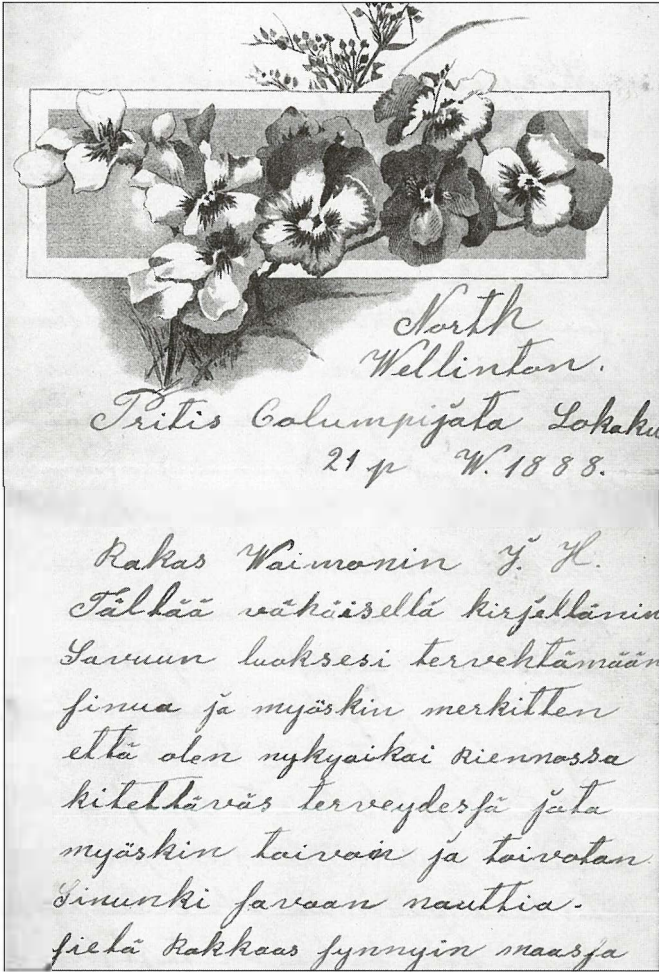 North
Wellinton.
Pritis Columpijata Lokaku
21 p W. 1888.
Rakas Waimonin Y. H.
Tältää vähäisellä kirjellänin
Savuun luoksesi tervehtämään
sinua ja myöskin merkitten
että olen nykyaikai Riennossa
kitettäväs terveydessä jota
myöskin toivoin ja toivotan
Sinunki savaan nauttia.
sielä Rakkaas synnyin maassa